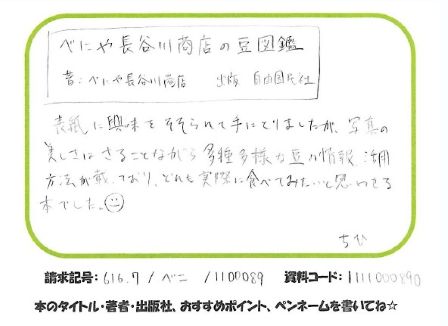 べにや長谷川商店の豆図鑑
著：べにや長谷川商店　出版 自由国民社
表紙に興味をそそられて手にとりましたが、写真の
美しさはさることながら多種多様な豆の情報、活用
方法が載っており、どれも実際に食べてみたいと思わせる
本でした。
ちひ
請求記号：616.7 / ベニ / 1100089 資料コード：1111000890
本のタイトル・著者・出版社、おすすめポイント、ペンネームを書いてね☆